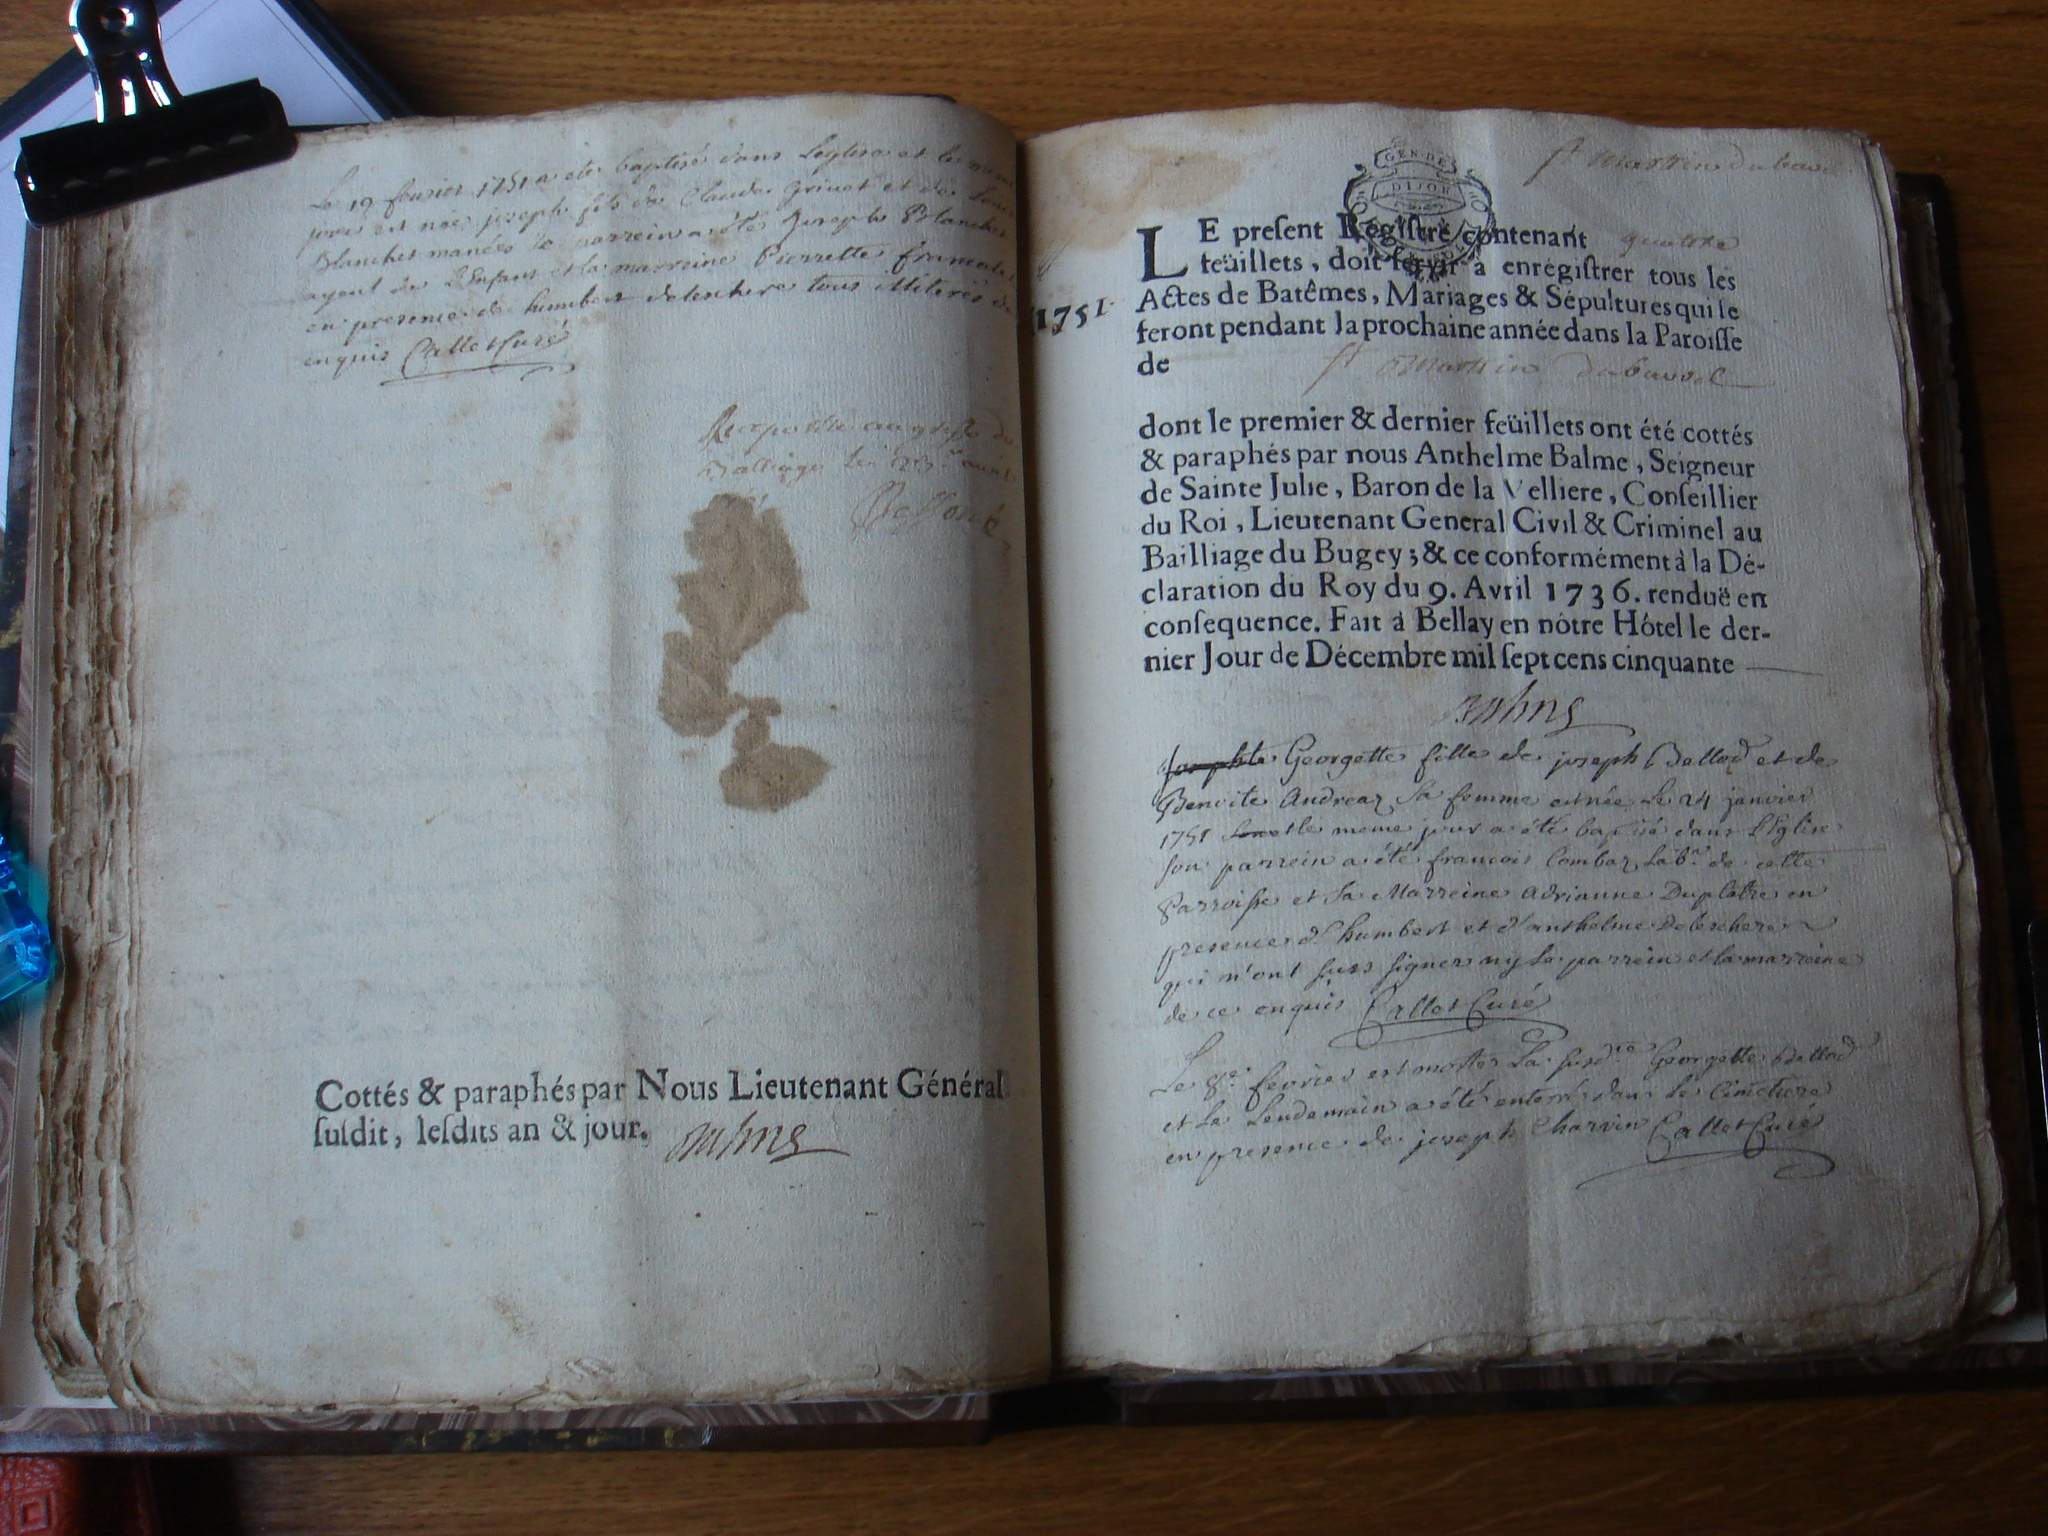 Le 19 fevrier 1751 a ete baptisé dans Leglise et le meme
jour est née joseph fils de Claude Grinet et de
Blanchet mariées le parrein a été Joseph Blanchet
ayeul de L'Enfant et la marreine Pierrette francoise
en presence de humbert deleschere tous illiterés de
enquis Callet Curé
au greffe du
Balliage
Cottés & paraphés par Nous Lieutenant Général
ſuſdit, leſdits an & jour.
GEN DE
DIJON
st martin du bavel
LE preſent Regiſtre contenant quatre
feüillets, doit ſervir a enregiſtrer tous les
Actes de Batêmes, Mariages & Sépultures qui ſe
1751.
feront pendant la prochaine année dans la Paroiſſe
de st Martin du bavel
dont le premier & dernier feüillets ont été cottés
& paraphés par nous Anthelme Balme, Seigneur
de Sainte Julie, Baron de la Velliere, Conſeillier
du Roi, Lieutenant General Civil & Criminel au
Bailliage du Bugey; & ce conformément à la Dé-
claration du Roy du 9. Avril 1736. renduë en
conſequence. Fait à Bellay en nôtre Hôtel le der-
nier Jour de Décembre mil ſept cens cinquante
Josephte Georgette fille de joseph Bellod et de
Benoite Andreaz sa femme est née Le 24 janvier
1751 et le meme jour a été baptisé dans L'Eglise
son parrein a été francois Combaz lab.r de cette
Parroisse et sa Marreine adrianne Duplatre en
presence d'humbert et d'anthelme Deleschere
qui n'ont sçus signer ny le parrein et la marreine
de ce enquis Callet Curé
Le 8e. fevrier est morte La susd.te Georgette Bellod
et le Lendemain a été enterré dans le Cimetiere
en presence de joseph Charvin Callet Curé